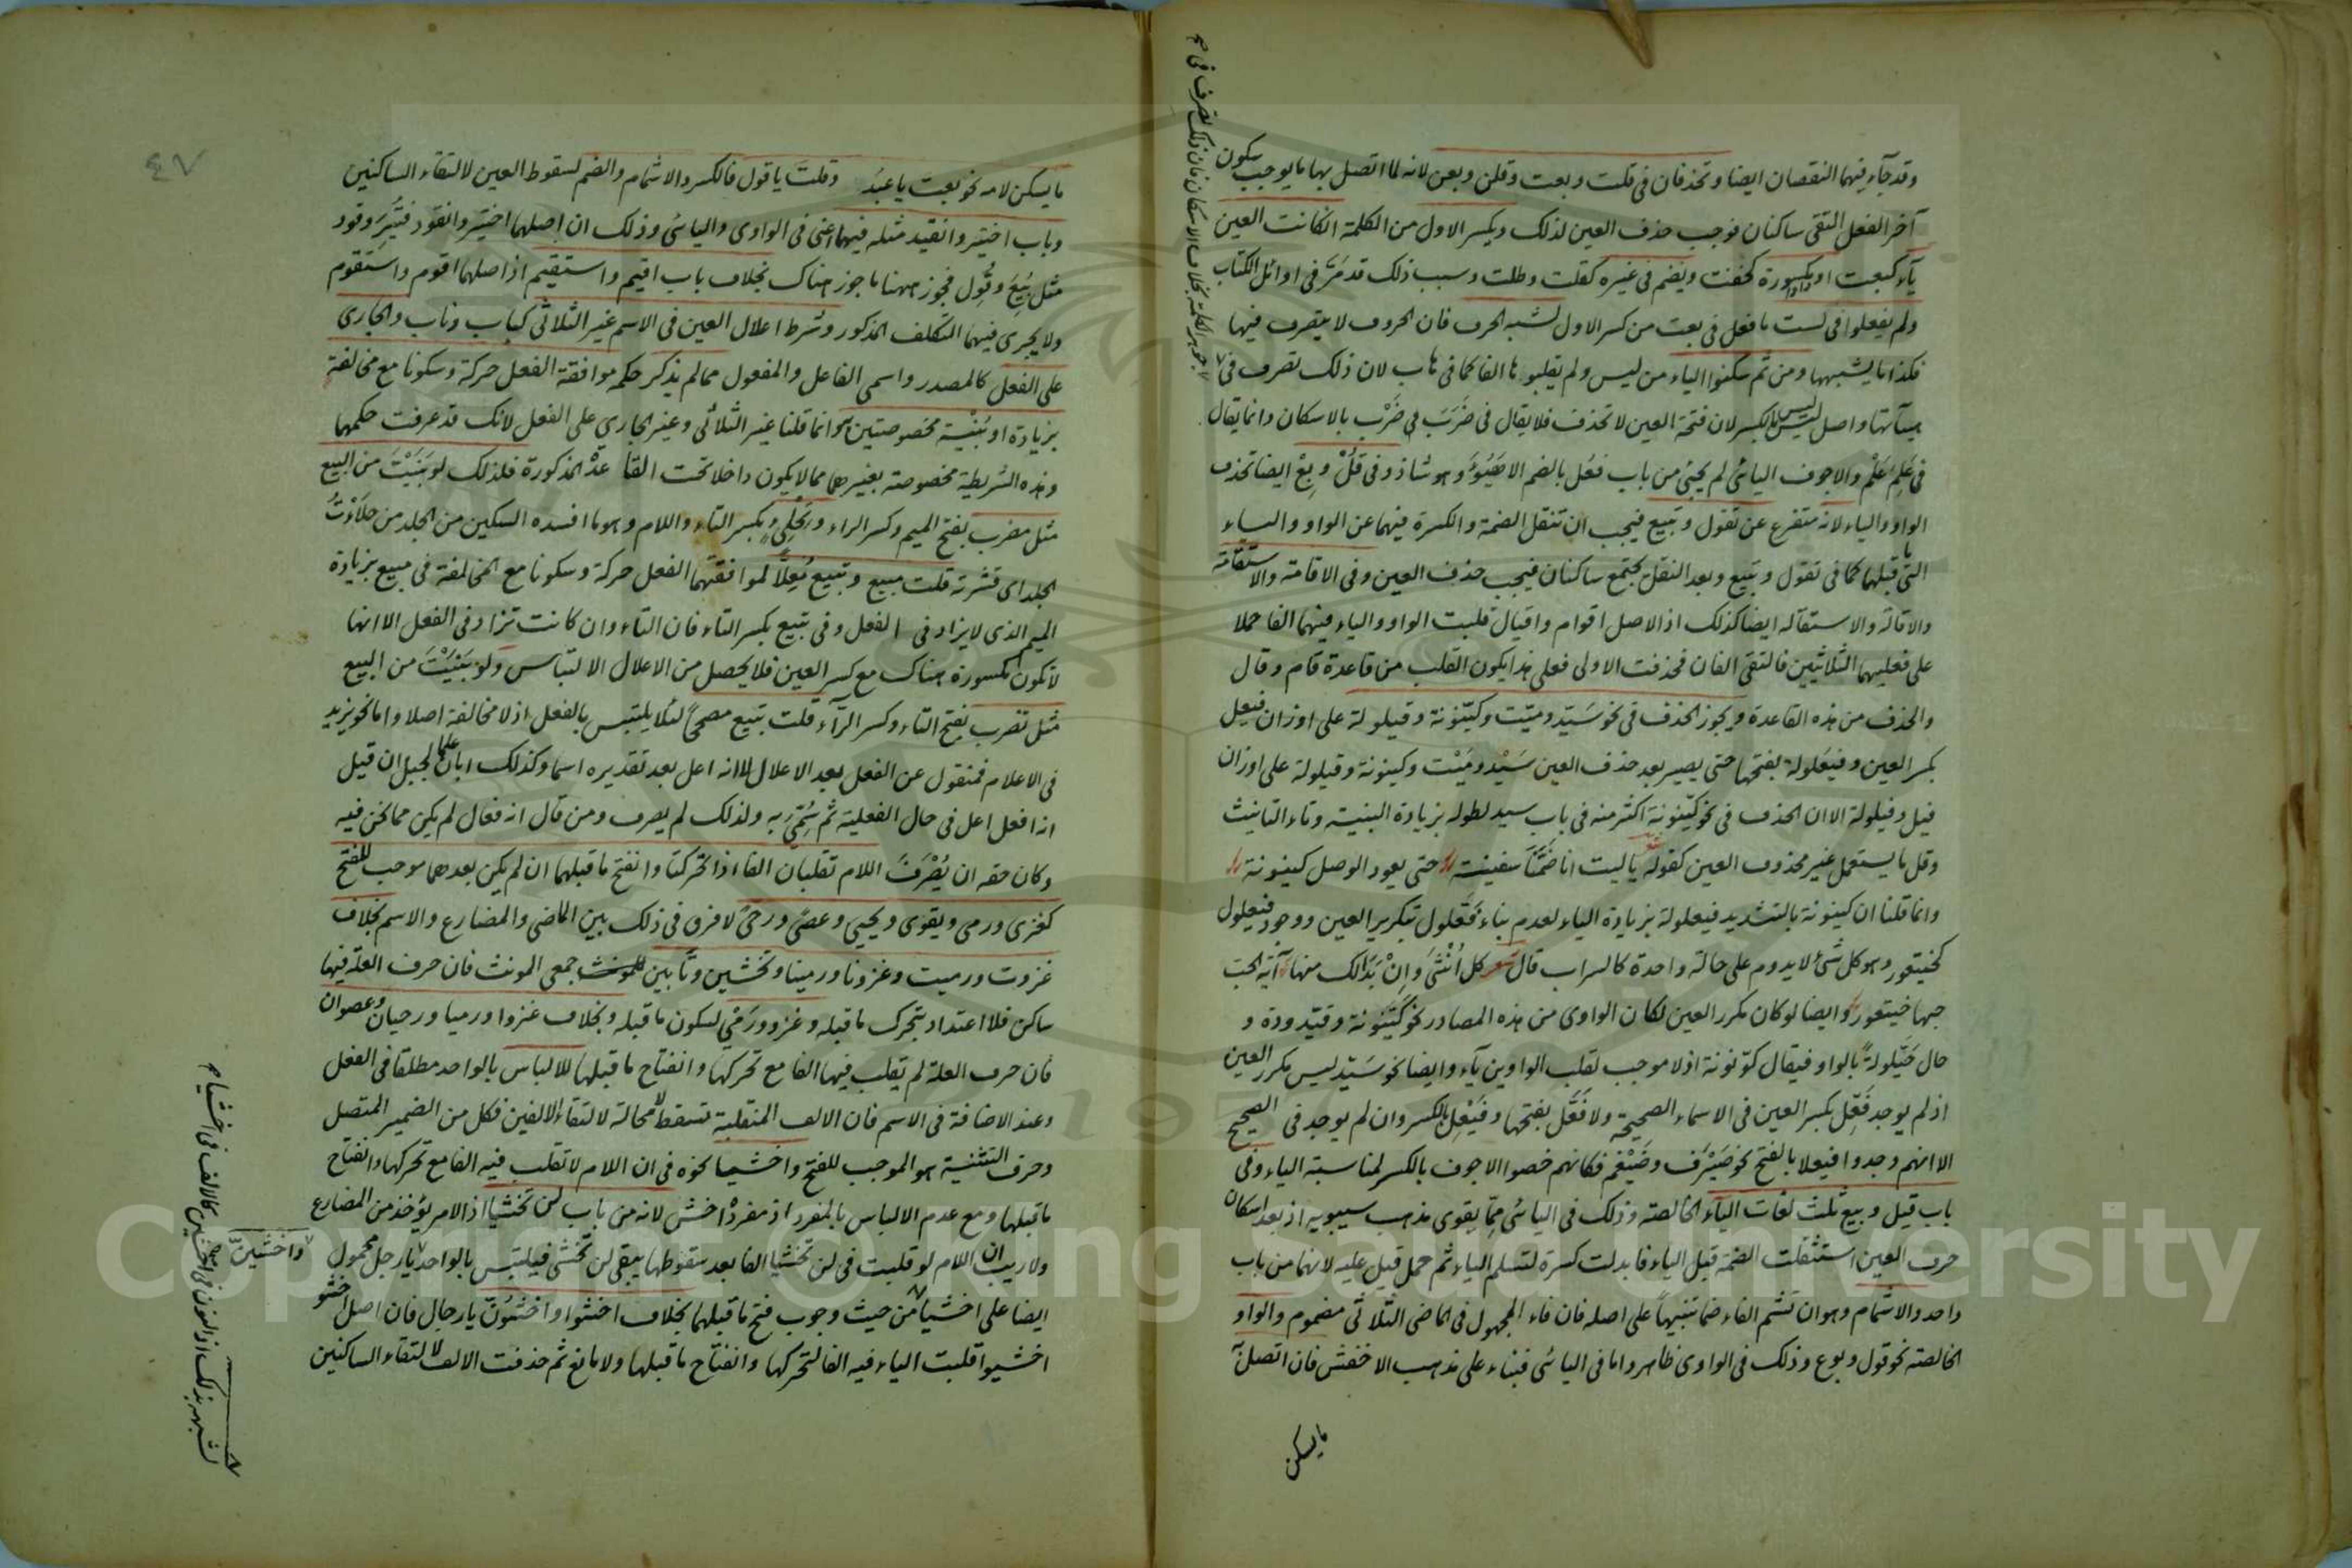 وقد جآء فيهما النقصان ايضا وتحذفان في قلت وبعت وقلن وبعن لانه لما اتصل بها ما يوجب سكون
آخر الفعل التقى ساكنان فوجب حذف العين لذلك ويكسر الاول من الكلمة ان كانت العين
يآء كبعت او مكسورة كخفت ويضم في غيره كقلت وطلت وسبب ذلك قد مرّ في اوائل الكتاب
ولم يفعلوا في لست ما فعل في بعت من كسر الاول لشبه الحرف فان الحروف لا يتصرف فيها
فكذا ما يشبهها ومن ثم سكنوا الياء من ليس ولم يقلبوها الفا كما في هاب لان ذلك تصرف في
واصل ليس بالكسر لان فتحة العين لا تحذف فلا يقال في ضَرَبَ ضَرْب بالاسكان وانما يقال
في عَلِمَ عَلْم والاجوف اليائي لم يجئ من باب فعُل بالضم الا هَيُؤَ وهو شاذ وفي قُلْ وبِعْ ايضا تحذف
الواو والياء لانه متفرع عن تقول وتبيع فيجب ان تنقل الضمة والكسرة فيهما عن الواو والياء
الى ما قبلهما كما في تقول وتبيع وبعد النقل يجتمع ساكنان فيجب حذف العين وفي الاقامة والاستقامة
والاقالة والاستقالة ايضا كذلك اذ الاصل اقوام واقيال قلبت الواو والياء فيهما الفا حملا
على فعليهما الثلاثيين فالتقى الفان فحذفت الاولى فعلى هذا يكون القلب من قاعدة قام وقال
والحذف من هذه القاعدة ويجوز الحذف في نحو سَيّد وميّت وكيّنونة وقيلولة على اوزان فيعل
بكسر العين وفيعَلولة بفتحها حتى يصير بعد حذف العين سَيْد ومَيْت وكينونة وقيلولة على اوزان
فيل وفيلولة الا ان الحذف في نحو كيّنونة اكثر منه في باب سيد لطوله بزيادة البنية وتاء التانيث
وقل ما يستعمل غير محذوف العين كقوله ياليت انا ضَمَّنَا سفينة حتى يعود الوصل كينونة
وانما قلنا ان كينونة بالتشديد فيعلولة بزيادة الياء لعدم بناء فَعَّلول بتكرير العين ووجود فيعلول
كخيتعور وهو كل شئ لا يدوم على حالة واحدة كالسراب قال شعر كل اُنْثَى وإنْ بَدَا لك منها آية الحب
حبها خيتعور وايضا لو كان مكرر العين لكان الواوي من هذه المصادر نحو كيّنونة وقيّدودة و
حال حَيّلولةً بالواو فيقال كوّنونة اذ لا موجب لقلب الواوين يآء وايضا نحو سَيّد ليس مكرر العين
اذ لم يوجد فَعِّل بكسر العين في الاسماء الصحيحة ولا فَعَّل بفتحها وفَيْعِل بالكسر وان لم يوجد في الصحيح
الا انهم وجدوا فيعلا بالفتح نحو صَيْرَف وضَيْغم فكانهم خصوا الاجوف بالكسر لمناسبة الياء وفي
باب قيل وبيع ثلث لغات اليآء الخالصة وذلك في اليائي مما يقوي مذهب سيبويه اذ بعد اسكان
حرف العين استثقلت الضمة قبل الياء فابدلت كسرة لتسلم الياء ثم حمل قيل عليه لانهما من باب
واحد والاشمام وهو ان تشم الفاء ضما تنبيهاً على اصله فان فاء المجهول في الماضي الثلاثي مضموم والواو
الخالصة نحو قول وبوع وذلك في الواوي ظاهر واما في اليائي فبناء على مذهب الاخفش فان اتصل به
ما يسكن
٤٧
ما يسكن لامه نحو بعت يا عبد وقلت يا قول فالكسر والاشمام والضم لسقوط العين لالتقاء الساكنين
وباب اختير وانقيد مثله فيهما اعني في الواوي واليائي وذلك ان اصلهما اختير وانقود فتُيِرَ وقود
مثل بُيِعَ وقُوِل فجوز ههنا ما جوز هناك بخلاف باب اقيم واستقيم اذ اصلهما اقوم واستقوم
ولا يجرى فيهما التكلف المذكور وشرط اعلال العين في الاسم غير الثلاثي كباب وناب والجارى
على الفعل كالمصدر واسمي الفاعل والمفعول مما لم يذكر حكمه موافقة الفعل حركة وسكونا مع مخالفة
بزيادة او بُنْيَة مخصوصتين وانما قلنا غير الثلاثي وغير الجاري على الفعل لانك قد عرفت حكمهما
وهذه الشريطة مخصوصة بغيرهما مما لا يكون داخلا تحت القاعدة المذكورة فلذلك لو بَنَيْتَ من البيع
مثل مضرب بفتح الميم وكسر الراء وتِحْلِئٍ بكسر التاء واللام وهو ما افسده السكين من الجلد من حلأتُ
الجلد اى قشرته قلت مبيع وتبيع مُعِلاًّ لموافقتهما الفعل حركة وسكونا مع المخالفة في مبيع بزيادة
الميم الذي لا يزاد في الفعل وفي تبيع بكسر التاء فان التاء وان كانت تزاد في الفعل الا انها
لا تكون مكسورة هناك مع كسر العين فلا يحصل من الاعلال الالتباس ولو بَنَيْتَ من البيع
مثل تضرب بفتح التاء وكسر الرآء قلت تبيع مصححاً لئلا يلتبس بالفعل اذ لا مخالفة اصلا واما نحو يزيد
في الاعلام فمنقول عن الفعل بعد الاعلال لا انه اعل بعد تقديره اسما وكذلك ابان علما لجبل ان قيل
انه افعل اعل في حال الفعلية ثم سُمّي به ولذلك لم يصرف ومن قال انه فعال لم يكن مما نحن فيه
وكان حقه ان يُصْرَفَ اللام تقلبان الفا اذا تحركتا وانفتح ما قبلهما ان لم يكن بعدهما موجب للفتح
كغزى ورمى ويقوى ويحيى وعصًى ورحىً لا فرق في ذلك بين الماضي والمضارع والاسم بخلاف
غزوت ورميت وغزونا ورمينا وتخشين وتأبين للمونث جمعي المونث فان حرف العلة فيها
ساكن فلا اعتداد بتحرك ما قبله وغزو ورَمْي لسكون ما قبله وبخلاف غزوا ورميا ورحيان وعصوان
فان حرف العلة لم يقلب فيها الفا مع تحركها وانفتاح ما قبلها للالباس بالواحد مطلقا في الفعل
وعند الاضافة في الاسم فان الالف المنقلبة تسقط لا محالة لالتقاء الالفين فكل من الضمير المتصل
وحرف التثنية هو الموجب للفتح واخشيا نحوه في ان اللام لا تقلب فيه الفا مع تحركها وانفتاح
ما قبلها ومع عدم الالباس بالمفرد اذ مفرده اخش لانه من باب لن تخشيا اذ الامر يؤخذ من المضارع
ولا ريب ان اللام لو قلبت في لن تخشيا الفا بعد سقوطها يبقى لن تخشى فيلتبس بالواحد يا رجل محمول
واخشينّ
ايضا على اخشيا من حيث وجوب فتح ما قبلهما بخلاف اخشوا واخشوُنّ يا رجال فان اصل اخشو
اخشيوا قلبت الياء فيه الفا لتحركها وانفتاح ما قبلها ولا مانع ثم حذفت الالف لالتقاء الساكنين
لشبهه بذلك اذ النون في اخشين كالالف في اخشيا
Copyright © King Saud University
195